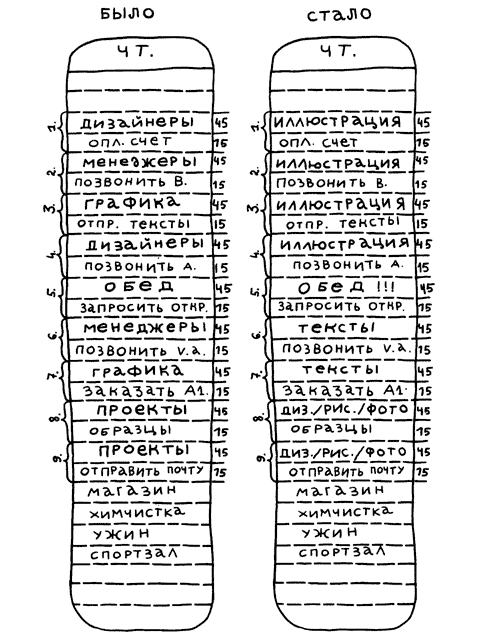 БЫЛО
ЧТ.
1. ДИЗАЙНЕРЫ 45
ОПЛ. СЧЕТ 15
2. МЕНЕДЖЕРЫ 45
ПОЗВОНИТЬ В. 15
3. ГРАФИКА 45
ОТПР. ТЕКСТЫ 15
4. ДИЗАЙНЕРЫ 45
ПОЗВОНИТЬ А. 15
5. ОБЕД 45
ЗАПРОСИТЬ ОТКР. 15
6. МЕНЕДЖЕРЫ 45
ПОЗВОНИТЬ V.A. 15
7. ГРАФИКА 45
ЗАКАЗАТЬ А1. 15
8. ПРОЕКТЫ 45
ОБРАЗЦЫ 15
9. ПРОЕКТЫ 45
ОТПРАВИТЬ ПОЧТУ 15
МАГАЗИН
ХИМЧИСТКА
УЖИН
СПОРТЗАЛ
СТАЛО
ЧТ.
1. ИЛЛЮСТРАЦИЯ 45
ОПЛ. СЧЕТ 15
2. ИЛЛЮСТРАЦИЯ 45
ПОЗВОНИТЬ В. 15
3. ИЛЛЮСТРАЦИЯ 45
ОТПР. ТЕКСТЫ 15
4. ИЛЛЮСТРАЦИЯ 45
ПОЗВОНИТЬ А. 15
5. ОБЕД !!! 45
ЗАПРОСИТЬ ОТКР. 15
6. ТЕКСТЫ 45
ПОЗВОНИТЬ V.A. 15
7. ТЕКСТЫ 45
ЗАКАЗАТЬ А1. 15
8. ДИЗ./РИС./ФОТО 45
ОБРАЗЦЫ 15
9. ДИЗ./РИС./ФОТО 45
ОТПРАВИТЬ ПОЧТУ 15
МАГАЗИН
ХИМЧИСТКА
УЖИН
СПОРТЗАЛ